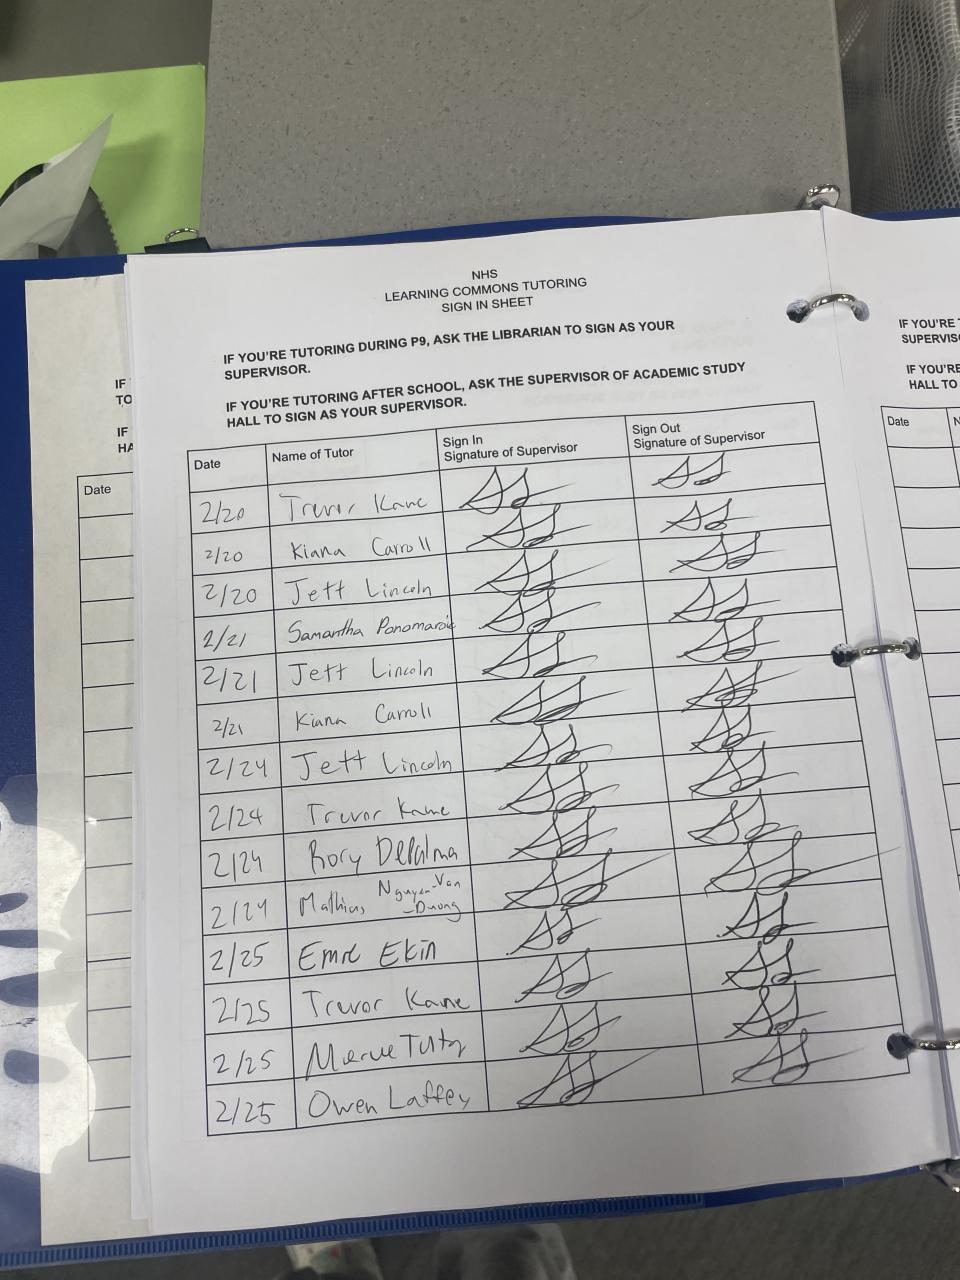 NHS
LEARNING COMMONS TUTORING
SIGN IN SHEET
IF YOU'RE TUTORING DURING P9, ASK THE LIBRARIAN TO SIGN AS YOUR
SUPERVISOR.
IF YOU'RE TUTORING AFTER SCHOOL, ASK THE SUPERVISOR OF ACADEMIC STUDY
HALL TO SIGN AS YOUR SUPERVISOR.
Date Name of Tutor Sign In Signature of Supervisor Sign Out Signature of Supervisor
2/20 Trevor Kane
2/20 Kiana Carroll
2/20 Jett Lincoln
2/21 Samantha
2/21 Jett Lincoln
2/21 Kiana Carroll
2/24 Jett Lincoln
2/24 Trevor Kane
2/24 Rory DePalma
2/24 Mathias Nguyen-Van
-Duong
2/25 Emre Ekin
2/25 Trevor Kane
2/25 Merve
2/25 Owen Laffey
IF
TO
IF
HA
Date
IF YOU'RE
SUPERVIS
IF YOU'RE
HALL TO
Date N